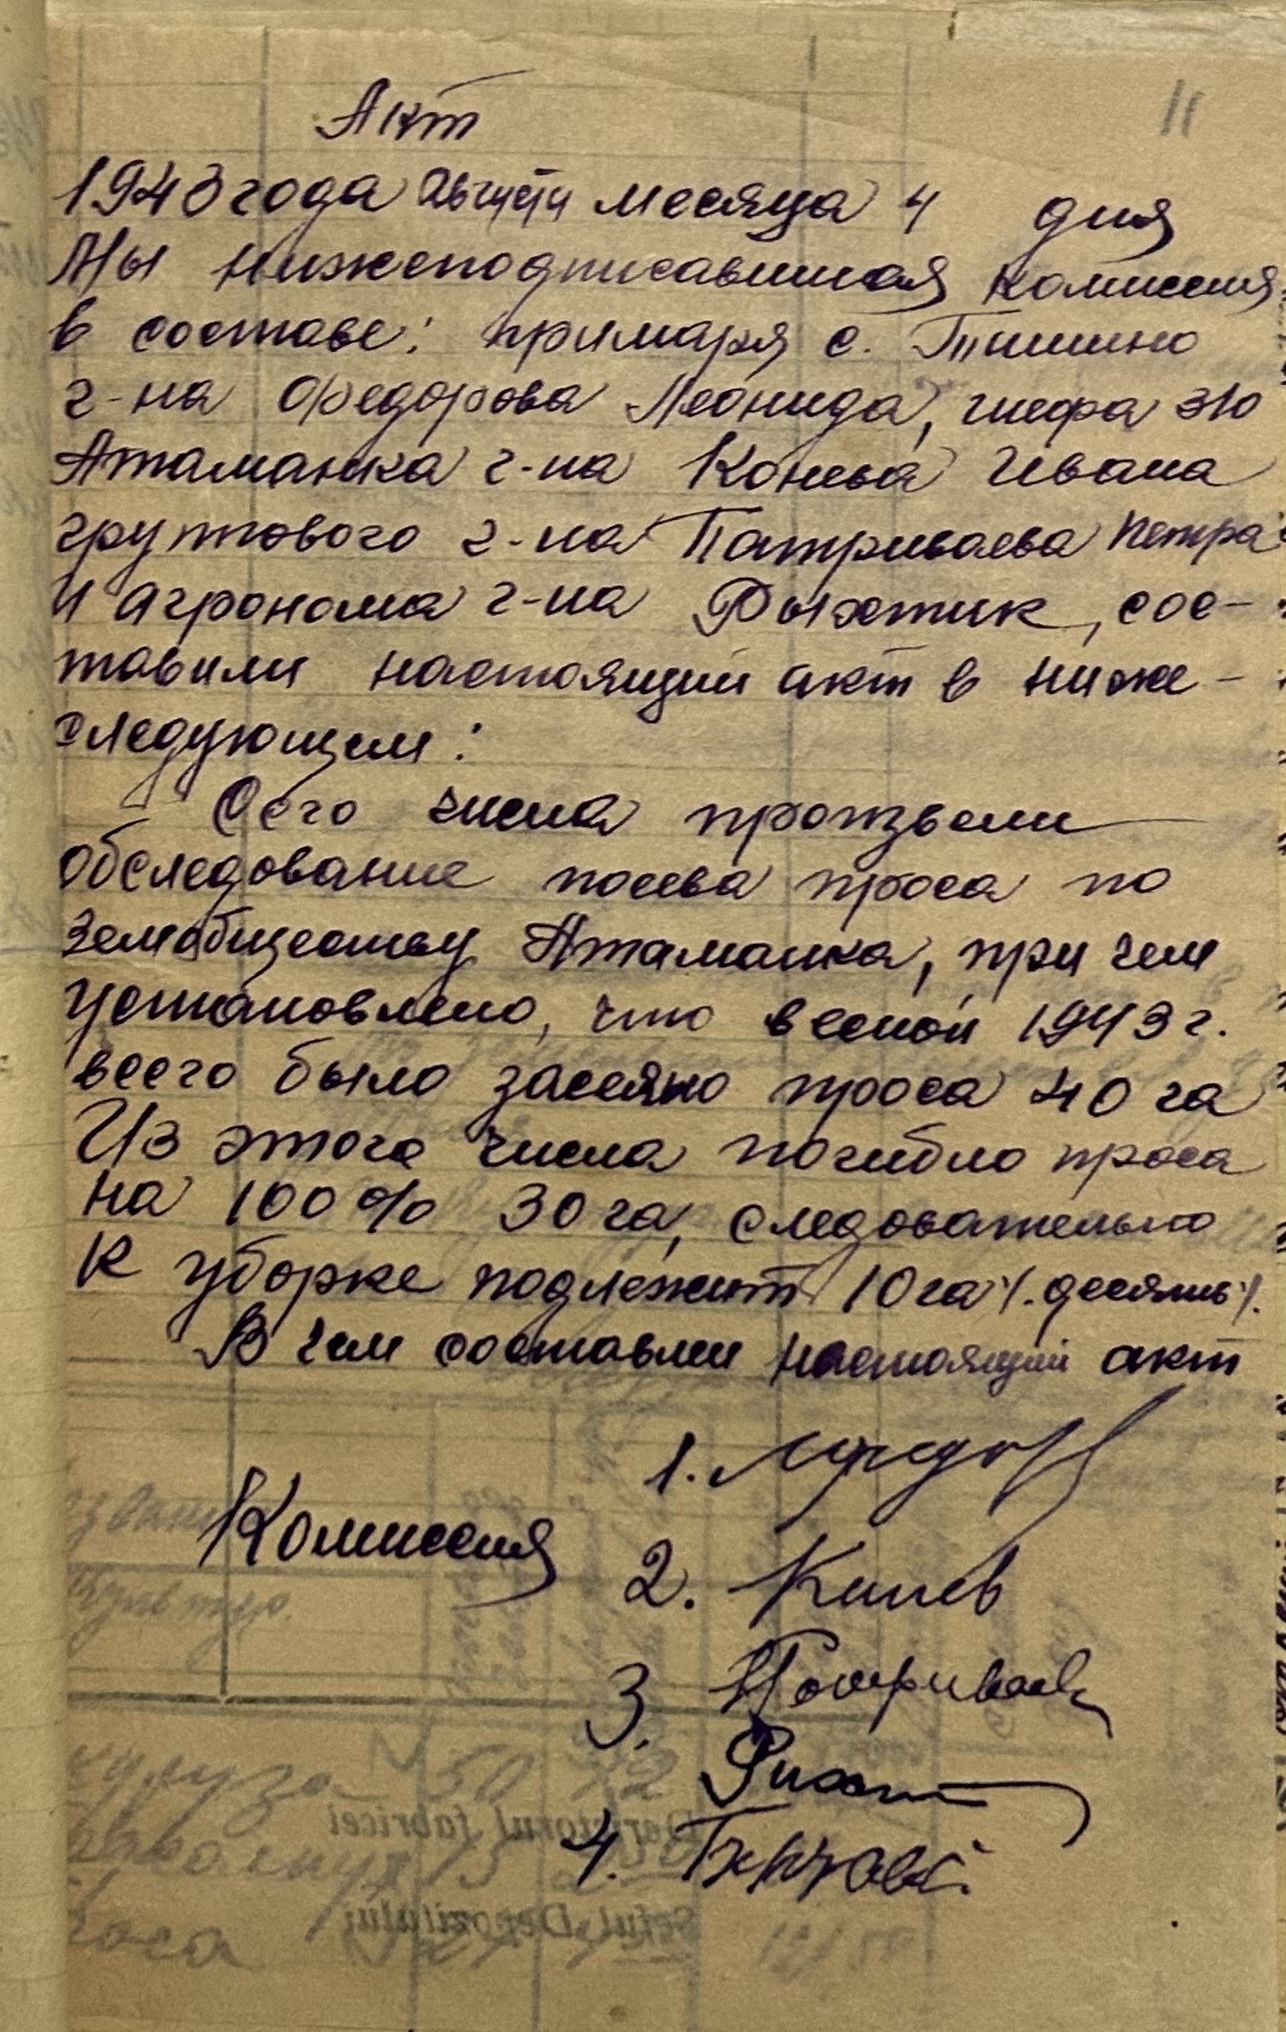 11
Акт
1943 года Августа месяца 4 дня
Мы нижеподписавшиеся комиссия
в составе: примаря с. Тишино
г-на Федорова Леонида, шефа з/о
Атаманка г-на Конева Ивана
группового г-на Патриваева Петра
и агронома г-на Рыхтик, сос-
тавили настоящий акт в ниже-
следующем:
Сего числа произвели
обследование посева проса по
земобществу Атаманка, при чем
установлено, что весной 1943 г.
всего было засеяно проса 40 га
Из этого числа погибло проса
на 100% 30 га, следовательно
к уборке подлежит 10 га /. десять /.
В чем составлен настоящий акт
1.
Комиссия
2. Конев
3. Потриваев
Рихт
4.
Derectorul fabricei
Șeful Depozitului